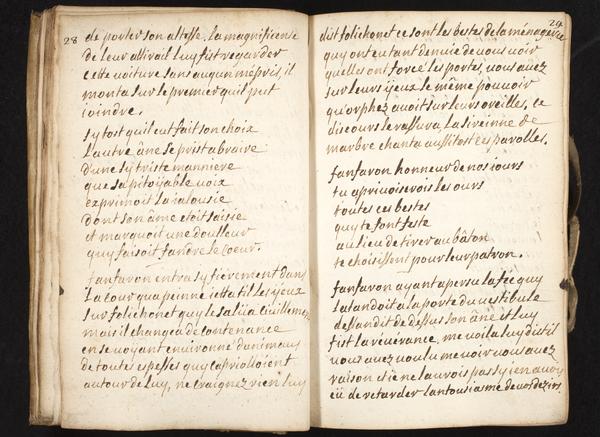 28
de porter son altesse. la magnificense
de leur attirail luy fist regarder
cette voiture sans auqun mepris, il
monta sur le premier quil peut
ioindre.
sy tost quil eut fait son choix
L'autre âne se prist a braire
d'une sy triste manniere
que sa pitoÿable voix
exprimoit la ialousie
dont son âme etoit saisie
et marquoit une doulleur
quy faisoit fandre le Coeur.
fanfaron entra sy fièrement dans
La cour qua peinne ietta til les ÿeux
sur folichonet quy le salüa Civillement
mais il changea de contenance
en se voÿant environné danimaux
de toutes espesses quy caprioloient
autour de Luy, ne craignez rien luy
29
dist folichonet ce sont les bestes de la ménagerie
quy ont eu tant denuie de uous uoir
quelles ont forcé les portes, uous auez
sur leurs ÿeux le même pouuoir
qu'orphez auoit sur leurs oreilles, ce
discours le rassura, la sireinne de
marbre chanta aussitost ces parolles.
fanfaron honneur de nos iours
tu apriuoiserois les ours
toutes ces bestes
quy te font feste
au lieu de tirer au bâton
te choisissent pour leur patron.
fanfaron ayant apersu la feé quy
latandoit a la porte du uestibule
dessandit de dessus son âne et luy
fist la réuerance, me uoila luy dist il
uous auez uoulu me uoir uous auez
raison et ie ne saurois pas sy ien auois
eü de retarder lantousiasme de uos dezirs.